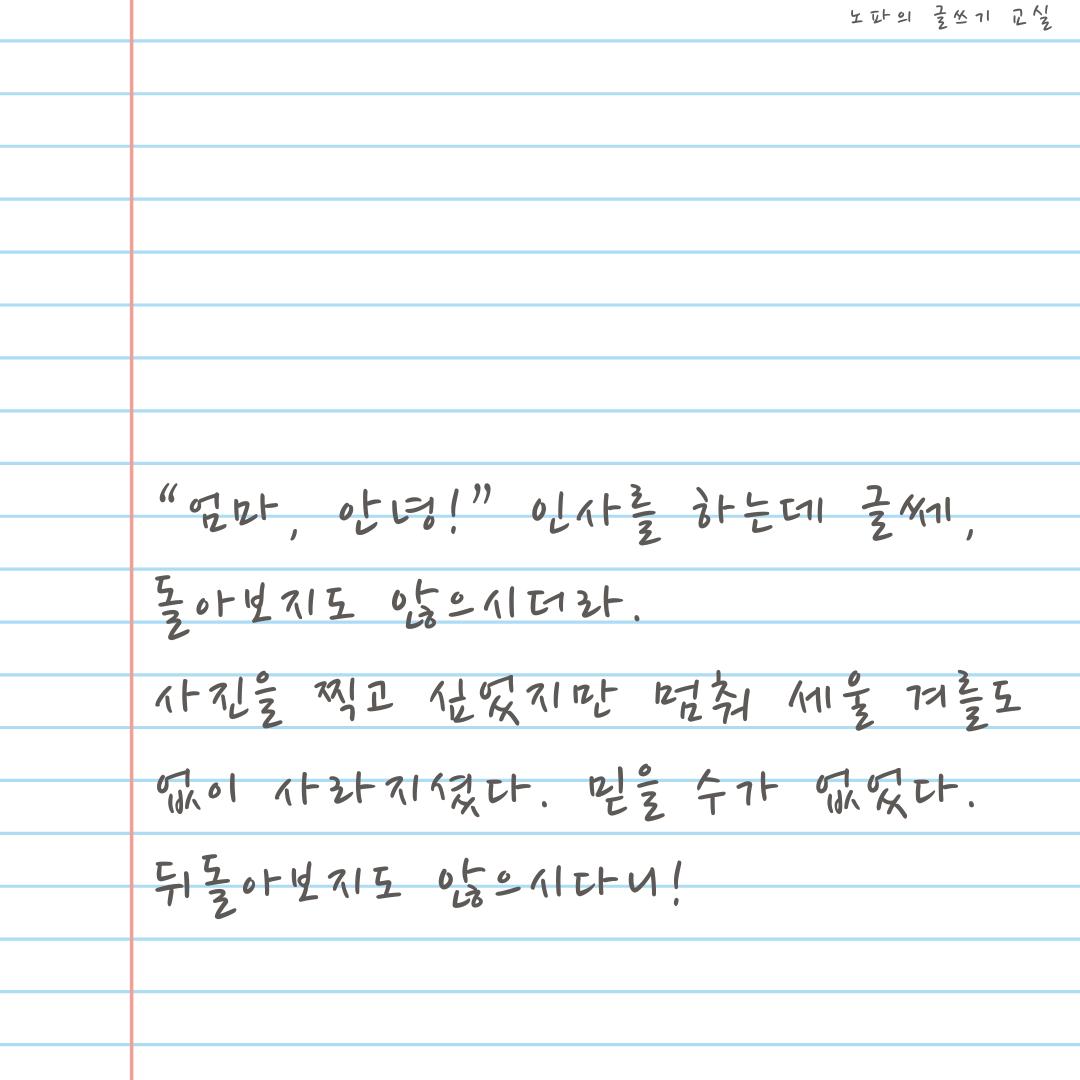 노파의 글쓰기 교실
“엄마, 안녕!” 인사를 하는데 글쎄,
돌아보지도 않으시더라.
사진을 찍고 싶었지만 멈춰 세울 겨를도
없이 사라지셨다. 믿을 수가 없었다.
뒤돌아보지도 않으시다니!